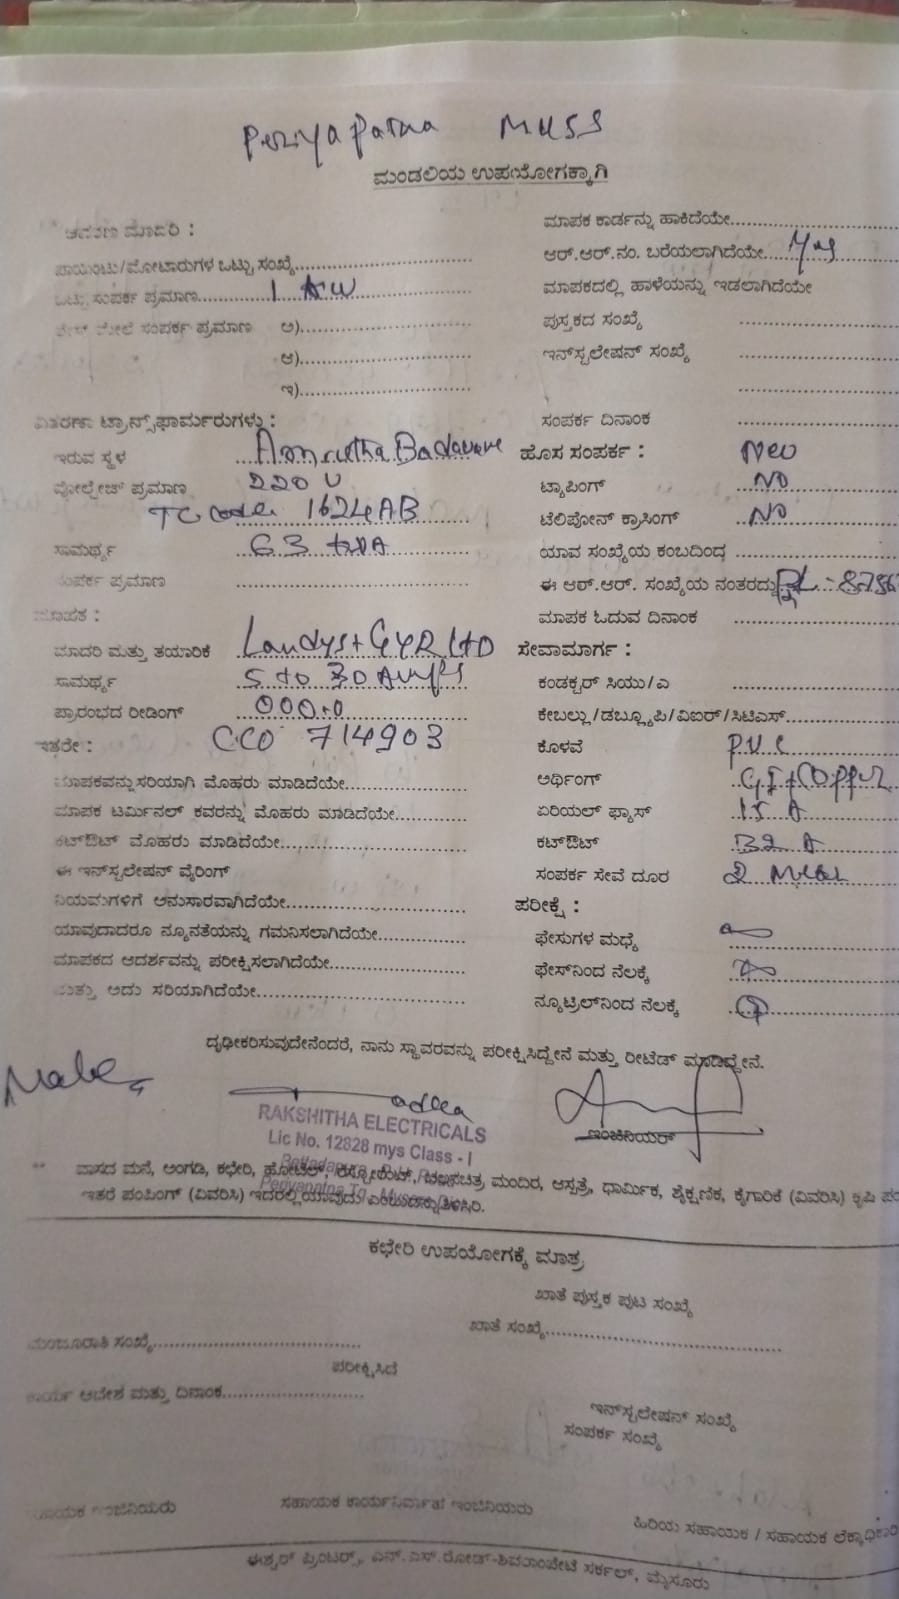 Periyapatna MUSS
ಮಂಡಲಿಯ ಉಪಯೋಗಕ್ಕಾಗಿ
ಪಾಯಿಂಟು/ಮೋಟಾರುಗಳ ಒಟ್ಟು ಸಂಖ್ಯೆ
ಒಟ್ಟು ಸಂಪರ್ಕ ಪ್ರಮಾಣ 1
ಮೇಲೆ ಸಂಪರ್ಕ ಪ್ರಮಾಣ ಅ)
ಆ)
ಇ)
ವಿತರಣಾ ಟ್ರಾನ್ಸ್‌ಫಾರ್ಮರುಗಳು :
ಇರುವ ಸ್ಥಳ Amrutha Badavane
ವೋಲ್ಟೇಜ್ ಪ್ರಮಾಣ 220 V
TC Code: 1624AB
ಸಾಮರ್ಥ್ಯ 63
ಸಂಪರ್ಕ ಪ್ರಮಾಣ
ಮಾಪಕ :
ಮಾದರಿ ಮತ್ತು ತಯಾರಿಕೆ Landys+GYR LTD
ಸಾಮರ್ಥ್ಯ 5 to 30 Amps
ಪ್ರಾರಂಭದ ರೀಡಿಂಗ್ 000.0
ಇತರೇ : CCO 714903
ಮಾಪಕವನ್ನು ಸರಿಯಾಗಿ ಮೊಹರು ಮಾಡಿದೆಯೇ
ಮಾಪಕ ಟರ್ಮಿನಲ್ ಕವರನ್ನು ಮೊಹರು ಮಾಡಿದೆಯೇ
ಕಟ್‌ಔಟ್ ಮೊಹರು ಮಾಡಿದೆಯೇ
ಈ ಇನ್‌ಸ್ಟಲೇಷನ್ ವೈರಿಂಗ್
ನಿಯಮಗಳಿಗೆ ಅನುಸಾರವಾಗಿದೆಯೇ
ಯಾವುದಾದರೂ ನ್ಯೂನತೆಯನ್ನು ಗಮನಿಸಲಾಗಿದೆಯೇ
ಮಾಪಕದ ಆದರ್ಶವನ್ನು ಪರೀಕ್ಷಿಸಲಾಗಿದೆಯೇ
ಮತ್ತು ಅದು ಸರಿಯಾಗಿದೆಯೇ
ಮಾಪಕ ಕಾರ್ಡನ್ನು ಹಾಕಿದೆಯೇ
ಆರ್.ಆರ್.ನಂ. ಬರೆಯಲಾಗಿದೆಯೇ Yes
ಮಾಪಕದಲ್ಲಿ ಹಾಳೆಯನ್ನು ಇಡಲಾಗಿದೆಯೇ
ಪುಸ್ತಕದ ಸಂಖ್ಯೆ
ಇನ್‌ಸ್ಟಲೇಷನ್ ಸಂಖ್ಯೆ
ಸಂಪರ್ಕ ದಿನಾಂಕ
ಹೊಸ ಸಂಪರ್ಕ : New
ಟ್ಯಾಪಿಂಗ್ NO
ಟೆಲಿಪೋನ್ ಕ್ರಾಸಿಂಗ್ NO
ಯಾವ ಸಂಖ್ಯೆಯ ಕಂಬದಿಂದ
ಈ ಆರ್.ಆರ್. ಸಂಖ್ಯೆಯ ನಂತರದ್ದು
ಮಾಪಕ ಓದುವ ದಿನಾಂಕ
ಸೇವಾಮಾರ್ಗ :
ಕಂಡಕ್ಟರ್ ಸಿಯು/ಎ
ಕೇಬಲ್ಲು/ಡಬ್ಲ್ಯೂಪಿ/ವಿಐರ್/ಸಿಟಿಎಸ್
ಕೊಳವೆ PVC
ಅರ್ಥಿಂಗ್ GI+Copper
ಏರಿಯಲ್ ಫ್ಯಾಸ್ 15 A
ಕಟ್‌ಔಟ್ 32 A
ಸಂಪರ್ಕ ಸೇವೆ ದೂರ
ಪರೀಕ್ಷೆ :
ಫೇಸುಗಳ ಮಧ್ಯೆ
ಫೇಸ್‌ನಿಂದ ನೆಲಕ್ಕೆ
ನ್ಯೂಟ್ರಿಲ್‌ನಿಂದ ನೆಲಕ್ಕೆ
ದೃಢೀಕರಿಸುವುದೇನೆಂದರೆ, ನಾನು ಸ್ಥಾವರವನ್ನು ಪರೀಕ್ಷಿಸಿದ್ದೇನೆ ಮತ್ತು ರೀಟೆಡ್ ಮಾಡಿದ್ದೇನೆ.
RAKSHITHA ELECTRICALS
Lic No. 12828 mys Class - I
ಇಂಜಿನಿಯರ್
** ವಾಸದ ಮನೆ, ಅಂಗಡಿ, ಕಛೇರಿ, ಹೋಟೆಲ್, ರೆಸ್ಟೋರೆಂಟ್, ಚಲನಚಿತ್ರ ಮಂದಿರ, ಆಸ್ಪತ್ರೆ, ಧಾರ್ಮಿಕ, ಶೈಕ್ಷಣಿಕ, ಕೈಗಾರಿಕೆ (ವಿವರಿಸಿ) ಕೃಷಿ
ಇತರೆ ಪಂಪಿಂಗ್ (ವಿವರಿಸಿ) ಇದರಲ್ಲಿ ಯಾವುದು
ಕಛೇರಿ ಉಪಯೋಗಕ್ಕೆ ಮಾತ್ರ
ಖಾತೆ ಪುಸ್ತಕ ಪುಟ ಸಂಖ್ಯೆ
ಮಂಜೂರಾತಿ ಸಂಖ್ಯೆ ಖಾತೆ ಸಂಖ್ಯೆ
ಪರೀಕ್ಷಿಸಿದೆ
ಕಾರ್ಯ ಆದೇಶ ಮತ್ತು ದಿನಾಂಕ
ಇನ್‌ಸ್ಟಲೇಷನ್ ಸಂಖ್ಯೆ
ಸಂಪರ್ಕ ಸಂಖ್ಯೆ
ಸಹಾಯಕ ಇಂಜಿನಿಯರು ಸಹಾಯಕ ಕಾರ್ಯನಿರ್ವಾಹಕ ಇಂಜಿನಿಯರು ಹಿರಿಯ ಸಹಾಯಕ / ಸಹಾಯಕ ಲೆಕ್ಕಾಧಿಕಾರಿ
ಈಶ್ವರ್ ಪ್ರಿಂಟರ್ಸ್, ಎನ್.ಎಸ್.ರೋಡ್-ಶಿವರಾಂಪೇಟೆ ಸರ್ಕಲ್, ಮೈಸೂರು